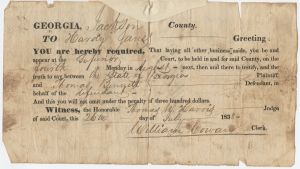 GEORGIA, Jackson County.
TO Hardy Greeting:
YOU are hereby required, That laying all other business aside, you be and
appear at the Superior Court, to be held in and for said County, on the
fourth Monday in August next, then and there to testify, and the
truth to say, between the State of Georgia Plaintiff
and Thomas Defendant, in
behalf of the defendant
And this you will not omit under the penalty of three hundred dollars.
Witness, the Honorable Thomas W. Harris Judge
of said Court, this 26th day of July 183
William Cowan Clerk.